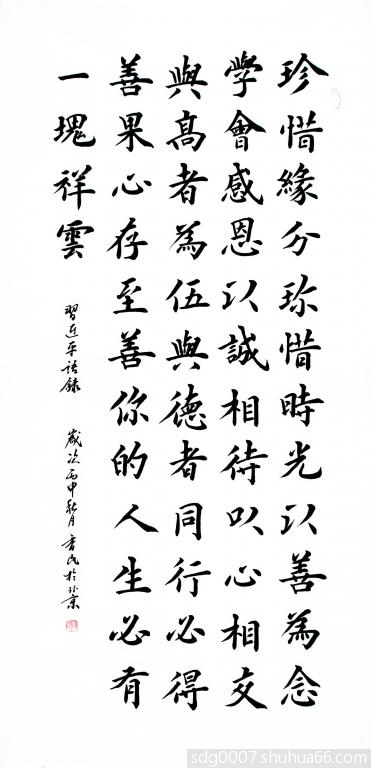 珍惜緣分珎惜時光以善為念
學會感恩以誠相待以心相交
與髙者為伍與德者同行必得
善果心存至善你的人生必有
一塊祥雲
習近平语録
歲次丙申秋月
民於北京
sdg0007.shuhua66.com